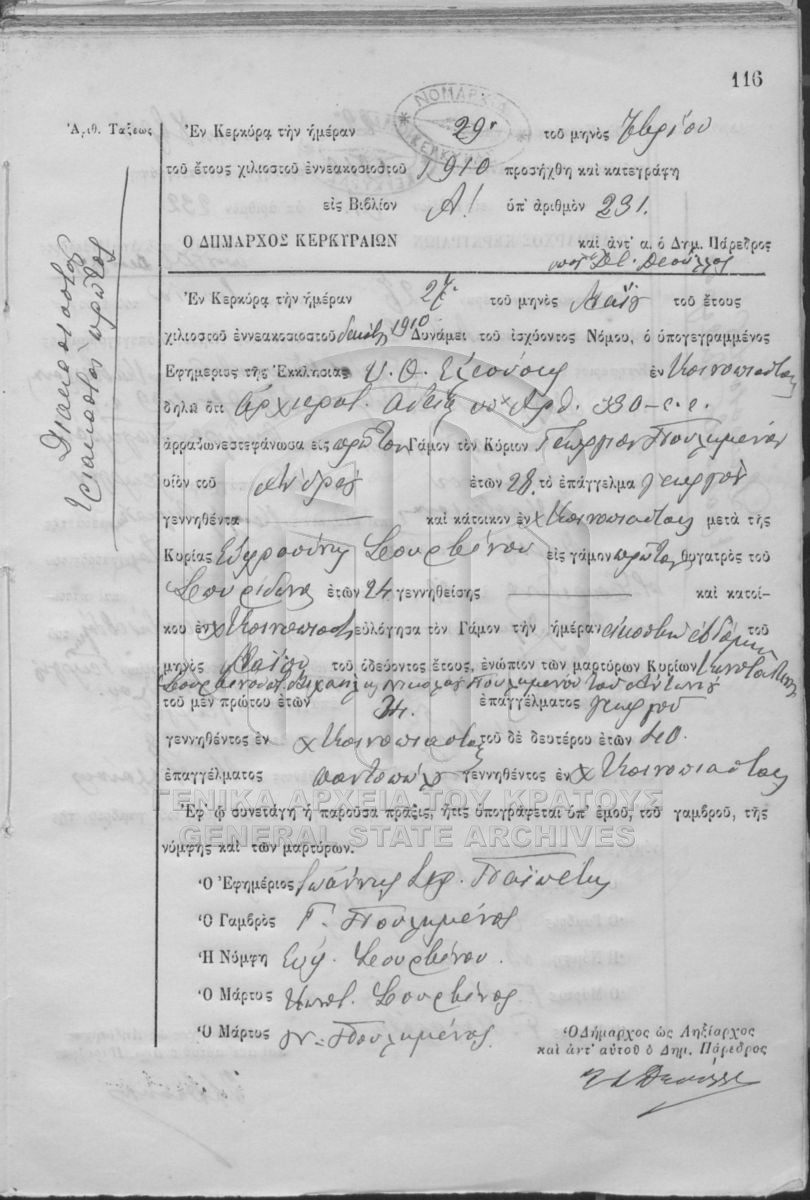 116
ΝΟΜΑΡΧΙΑ
ΚΕΡΚΥΡΑΣ
Ἀριθ. Τάξεως
Διακοσιοστὸν
τριακοστὸν πρῶτος
Ἐν Κερκύρᾳ τὴν ἡμέραν 29ην τοῦ μηνὸς
τοῦ ἔτους χιλιοστοῦ ἐννεακοσιοστοῦ 1910 προσήχθη καὶ κατεγράφη
εἰς Βιβλίον Α! ὑπ' ἀριθμὸν 231.
Ο ΔΗΜΑΡΧΟΣ ΚΕΡΚΥΡΑΙΩΝ καὶ ἀντ' α. ὁ Δημ. Πάρεδρος
Ἐν Κερκύρᾳ τὴν ἡμέραν 27 τοῦ μηνὸς Μαΐου τοῦ ἔτους
χιλιοστοῦ ἐννεακοσιοστοῦ δεκάτου 1910 Δυνάμει τοῦ ἰσχύοντος Νόμου, ὁ ὑπογεγραμμένος
Ἐφημέριος τῆς Ἐκκλησίας Υ. Θ. Ἐλεούσης ἐν Κυνοπιάσταις
δηλῶ ὅτι Ἀρχιερατ. Ἀδείᾳ ὑπ' Ἀρθ. 330
ἀρραβωνεστεφάνωσα εἰς πρῶτον Γάμον τὸν Κύριον Γεώργιον Πουλημένον
υἱὸν τοῦ Ἀνδρέου ἐτῶν 28. τὸ ἐπάγγελμα γεωργὸν
γεννηθέντα καὶ κάτοικον ἐν χ Κυνοπιάσταις μετὰ τῆς
Κυρίας Εὐφροσύνης Σουρβίνου εἰς γάμον πρῶτον θυγατρὸς τοῦ
Σπυρίδωνος ἐτῶν 24 γεννηθείσης καὶ κατοί-
κου ἐν χ Κυνοπιάσταις εὐλόγησα τὸν Γάμον τὴν ἡμέραν εἰκοστὴν ἑβδόμην τοῦ
μηνὸς Μαΐου τοῦ ὁδεύοντος ἔτους, ἐνώπιον τῶν μαρτύρων Κυρίων Κωνσταντίνου
Σουρβίνου Μιχαὴλ Νικολάου Πουλημένου τοῦ Ἀντωνίου
τοῦ μὲν πρώτου ἐτῶν 24. ἐπαγγέλματος γεωργοῦ
γεννηθέντος ἐν χ Κυνοπιάσταις τοῦ δὲ δευτέρου ἐτῶν 40
ἐπαγγέλματος παντοπώλου γεννηθέντος ἐν χ Κυνοπιάσταις
ΓΕΝΙΚΑ ΑΡΧΕΙΑ ΤΟΥ ΚΡΑΤΟΥΣ
Ἐφ' ᾧ συνετάγη ἡ παροῦσα πρᾶξις, ἥτις ὑπογράφεται ὑπ' ἐμοῦ, τοῦ γαμβροῦ, τῆς
GENERAL STATE ARCHIVES
νύμφης καὶ τῶν μαρτύρων.
Ὁ Ἐφημέριος Ἰωάννης Σπ. Παϊπέτης
Ὁ Γαμβρὸς Γ. Πουλημένος
Ἡ Νύμφη Εὐφ. Σουρβίνου
Ὁ Μάρτυς Κωνστ. Σουρβίνος
Ὁ Μάρτυς Ν. Πουλημένος
Ὁ Δήμαρχος ὡς Ληξίαρχος
καὶ ἀντ' αὐτοῦ ὁ Δημ. Πάρεδρος